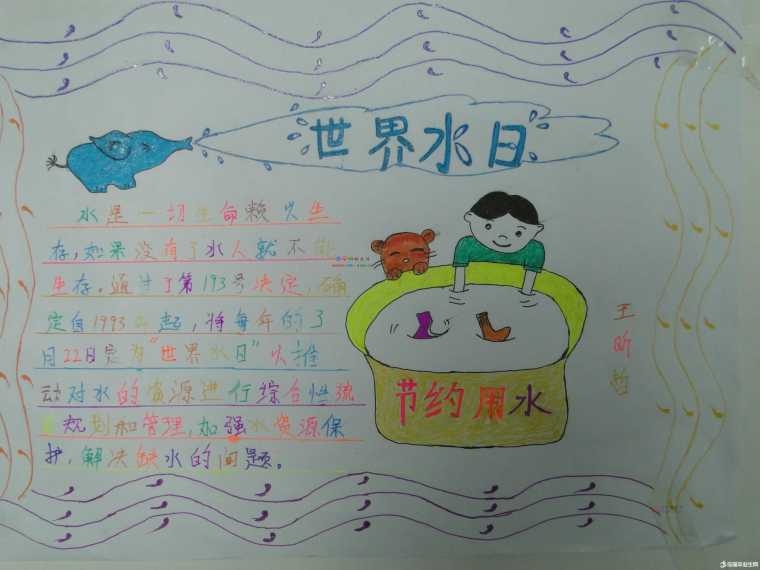 世界水日
水是一切生命赖以生
存，如果没有了水人就不能
生存。通过了第193号决定，确
定自1993年起，将每年的3
月22日定为“世界水日”以推
动对水的资源进行综合性统
规划和管理，加强水资源保
护，解决缺水的问题。
节约用水
王昕哲